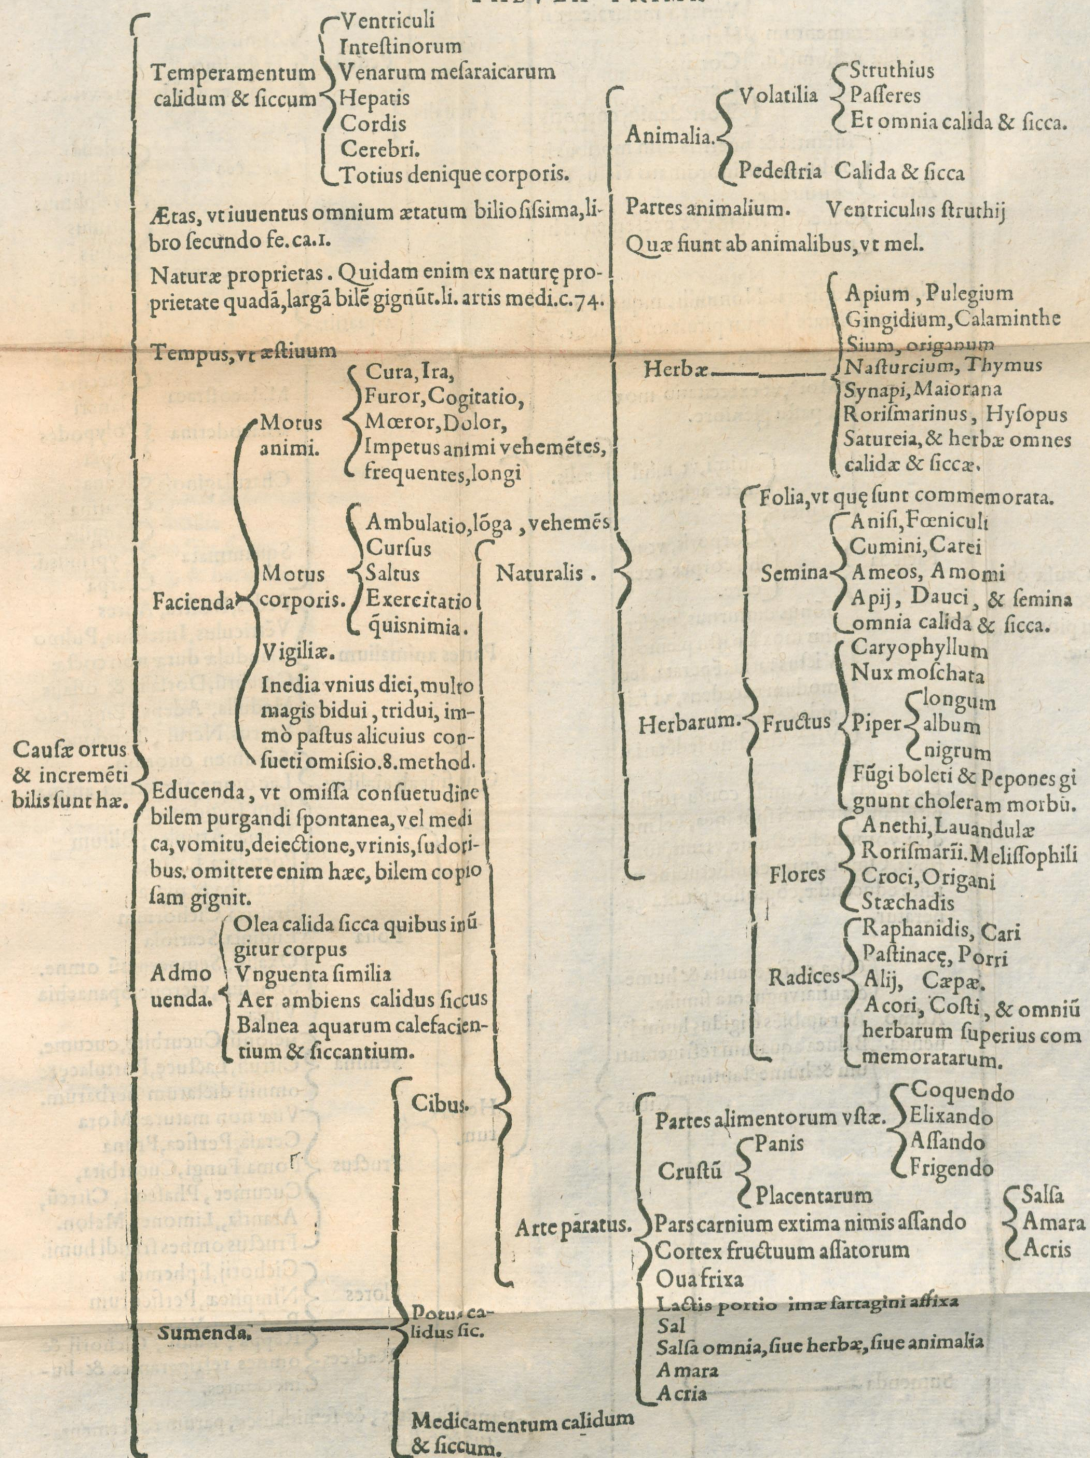 Ventriculi
Inteſtinorum
Temperamentum
calidum & ſiccum
Venarum meſaraicarum
Hepatis
Cordis
Cerebri.
Totius denique corporis.
Ætas, vt iuuentus omnium ætatum bilioſiſsima, li-
bro ſecundo fe. ca.1.
Naturæ proprietas. Quidam enim ex naturę pro-
prietate quadā, largā bilē gignūt. li. artis medi. c. 74.
Tempus, vt æſtiuum
Motus
animi.
Cura, Ira,
Furor, Cogitatio,
Mœror, Dolor,
Impetus animi vehemētes,
frequentes, longi
Facienda
Motus
corporis.
Ambulatio, lōga, vehemēs
Curſus
Saltus
Exercitatio
q̄uisnimia.
Vigiliæ.
Inedia vnius diei, multo
magis bidui, tridui, im-
mò paſtus alicuius con-
ſueti omiſsio. 8. method.
Cauſæ ortus
& incremēti
bilis ſunt hæ.
Educenda, vt omiſſa conſuetudine
bilem purgandi ſpontanea, vel medi
ca, vomitu, deiectione, vrinis, ſudori-
bus. omittere enim hæc, bilem copio
ſam gignit.
Admo
uenda.
Olea calida ſicca quibus inū
gitur corpus
Vnguenta ſimilia
Aer ambiens calidus ſiccus
Balnea aquarum calefacien-
tium & ſiccantium.
Sumenda.
Cibus.
Naturalis.
Animalia.
Volatilia
Struthius
Paſſeres
Et omnia calida & ſicca.
Pedeſtria Calida & ſicca
Partes animalium. Ventriculus ſtruthij
Quæ fiunt ab animalibus, vt mel.
Herbæ
Apium, Pulegium
Gingidium, Calaminthe
Sium, origanum
Naſturcium, Thymus
Synapi, Maiorana
Roriſmarinus, Hyſopus
Satureia, & herbæ omnes
calidæ & ſiccæ.
Herbarum.
Folia, vt quę ſunt commemorata.
Semina
Aniſi, Fœniculi
Cumini, Carei
Ameos, Amomi
Apij, Dauci, & ſemina
omnia calida & ſicca.
Fructus
Caryophyllum
Nux moſchata
Piper
longum
album
nigrum
Fūgi boleti & Pepones gi
gnunt choleram morbū.
Flores
Anethi, Lauandulæ
Roriſmarīi. Meliſſophili
Croci, Origani
Stæchadis
Radices
Raphanidis, Cari
Paſtinacę, Porri
Alij, Cæpæ.
Acori, Coſti, & omniū
herbarum ſuperius com
memoratarum.
Arte paratus.
Partes alimentorum vſtæ.
Coquendo
Elixando
Aſſando
Frigendo
Cruſtū
Panis
Placentarum
Pars carnium extima nimis aſſando
Cortex fructuum aſſatorum
Salſa
Amara
Acris
Oua frixa
Lactis portio imæ ſartagini affixa
Sal
Salſa omnia, ſiue herbæ, ſiue animalia
Amara
Acria
Potus ca-
lidus ſic.
Medicamentum calidum
& ſiccum.